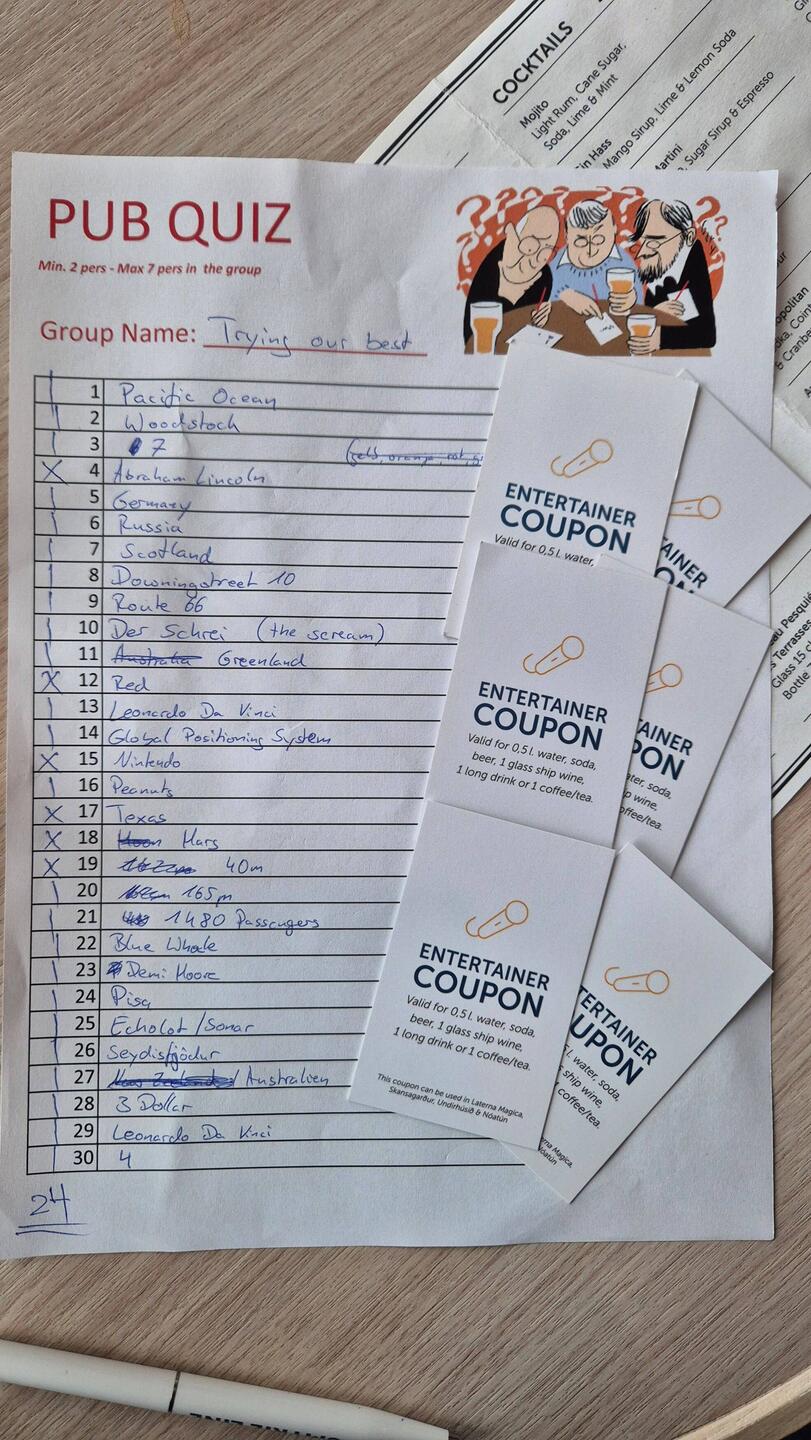 COCKTAILS
Mojito
Light Rum, Cane Sugar,
Soda, Lime & Mint
Hass
Mango Sirup, Lime & Lemon Soda
Sugar Sirup & Espresso
PUB QUIZ
Min. 2 pers - Max 7 pers in the group
Group Name: Trying our best
| 1 Pacific Ocean
| 2 Woodstock
| 3 7 (gelb, orange, rot,
X 4 Abraham Lincoln
| 5 Germany
| 6 Russia
| 7 Scotland
| 8 Downingstreet 10
| 9 Route 66
| 10 Der Schrei (the scream)
| 11 Australia Greenland
X 12 Red
| 13 Leonardo Da Vinci
| 14 Global Positioning System
X 15 Nintendo
| 16 Peanuts
X 17 Texas
X 18 Moon Mars
X 19 40m
| 20 165m
| 21 1480 Passengers
| 22 Blue Whale
| 23 Demi Moore
| 24 Pisa
| 25 Echolot/Sonar
| 26 Seydisfjödur
| 27 Australien
| 28 3 Dollar
| 29 Leonardo Da Vinci
| 30 4
24
ENTERTAINER
COUPON
Valid for 0,5 l. water,
ENTERTAINER
COUPON
Valid for 0,5 l. water, soda,
beer, 1 glass ship wine,
1 long drink or 1 coffee/tea.
ENTERTAINER
COUPON
Valid for 0,5 l. water, soda,
beer, 1 glass ship wine,
1 long drink or 1 coffee/tea.
This coupon can be used in Laterna Magica,
Skansagarður, Undirhúsið & Nóatún
soda,
wine,
soda,
ship wine,
coffee/tea.
Magica,
Terrasses
Glass 15 cl
Bottle